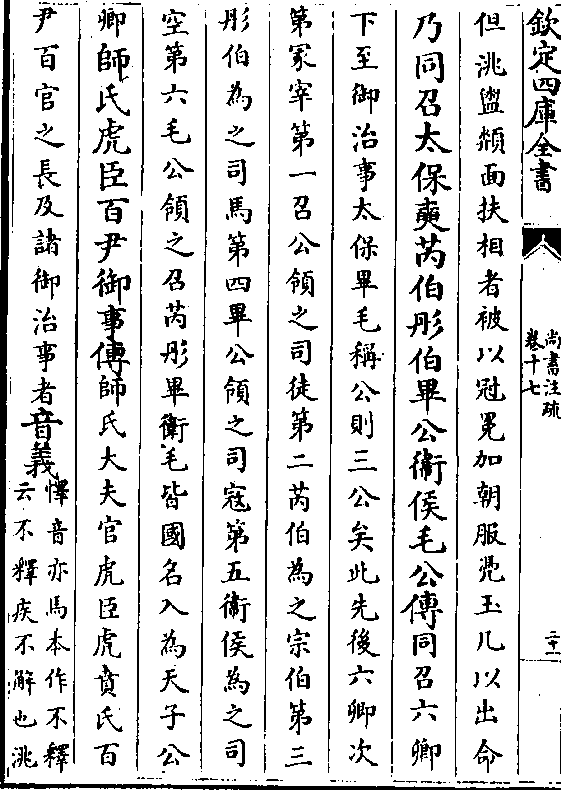 欽定四庫全書
尚書注疏
卷十七
二十一
但洮盥頮面扶相者被以冠冕加朝服凭玉几以出命
乃同召太保奭芮伯彤伯畢公衛侯毛公傳同召六卿
下至御治事太保畢毛稱公則三公矣此先後六卿次
第冢宰第一召公領之司徒第二芮伯為之宗伯第三
彤伯為之司馬第四畢公領之司寇第五衛侯為之司
空第六毛公領之召芮彤畢衛毛皆國名入為天子公
卿師氏虎臣百尹御事傳師氏大夫官虎臣虎賁氏百
尹百官之長及諸御治事者音義
懌音亦馬本作不釋
云不釋疾不解也洮